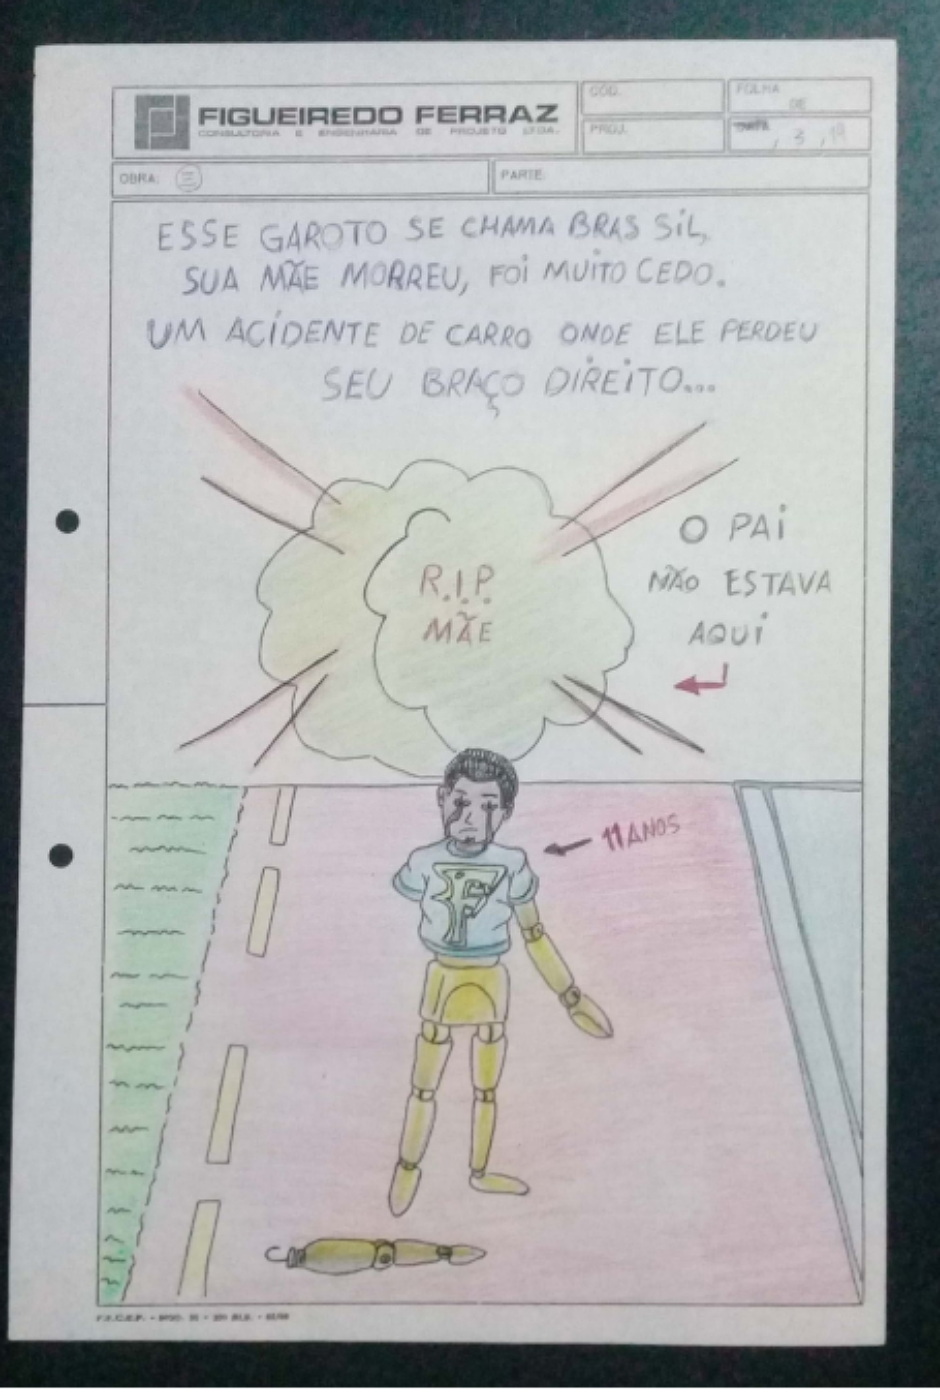 FIGUEIREDO FERRAZ
CONSULTORIA E ENGENHARIA DE PROJETO LTDA.
CÓD.
FOLHA
DE
PROJ.
DATA
, 3 , 19
OBRA:
PARTE:
ESSE GAROTO SE CHAMA BRAS SIL,
SUA MÃE MORREU, FOI MUITO CEDO.
UM ACIDENTE DE CARRO ONDE ELE PERDEU
SEU BRAÇO DIREITO...
R.I.P.
MÃE
O PAI
NÃO ESTAVA
AQUI
11 ANOS
F